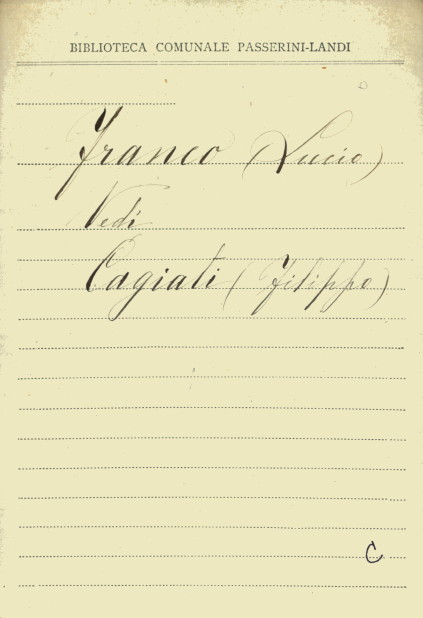 BIBLIOTECA COMUNALE PASSERINI-LANDI
Franco (Lucio)
Vedi
Cagiati (Filippo)
C